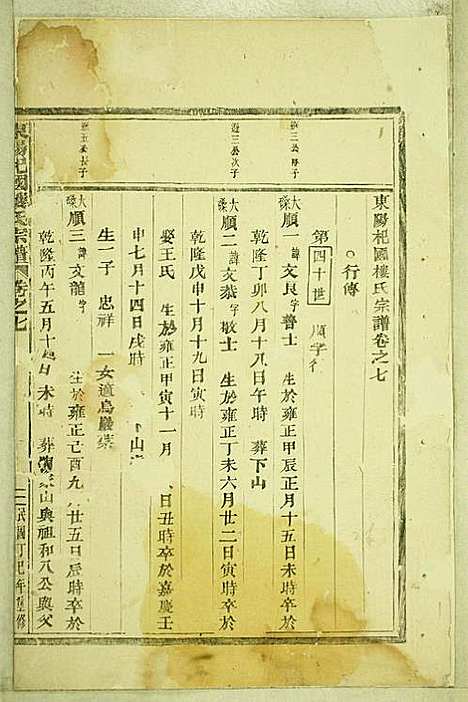 東陽杞國樓氏宗譜卷之七
○行傳
第四十世 順字行
遊三公長子
大溪順一 諱文良字魯士 生於雍正甲辰正月十五日未時卒於
乾隆丁卯八月十八日午時 葬下山
遊三公次子
大溪順二 諱文恭字敬士 生於雍正丁未六月廿二日寅時卒於
乾隆戊申十月十九日寅時
娶王氏 生於雍正甲寅十一月 日丑時卒於嘉慶壬
申七月十四日戌時 山
生一子 忠祥 一女適烏巖
遊五公長子
大溪順三 諱文龍字 生於雍正己酉九 廿五日辰時卒於
乾隆丙午五月十 日未時 葬 山與祖和八公與父
東陽杞國樓氏宗譜 卷之七
民國丁巳年重修